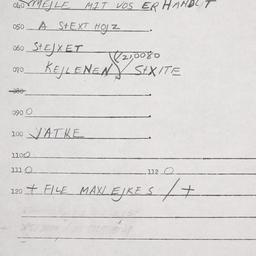 040 MEJLE MIT VOS ER HANDLT
050 A StEXT HOJZ.
060 StEJXET
(21,0080
070 KEJLENEN StXITE
080
090
100 JATKE
110
111 112
120 + FILE MAXLEJKES /+